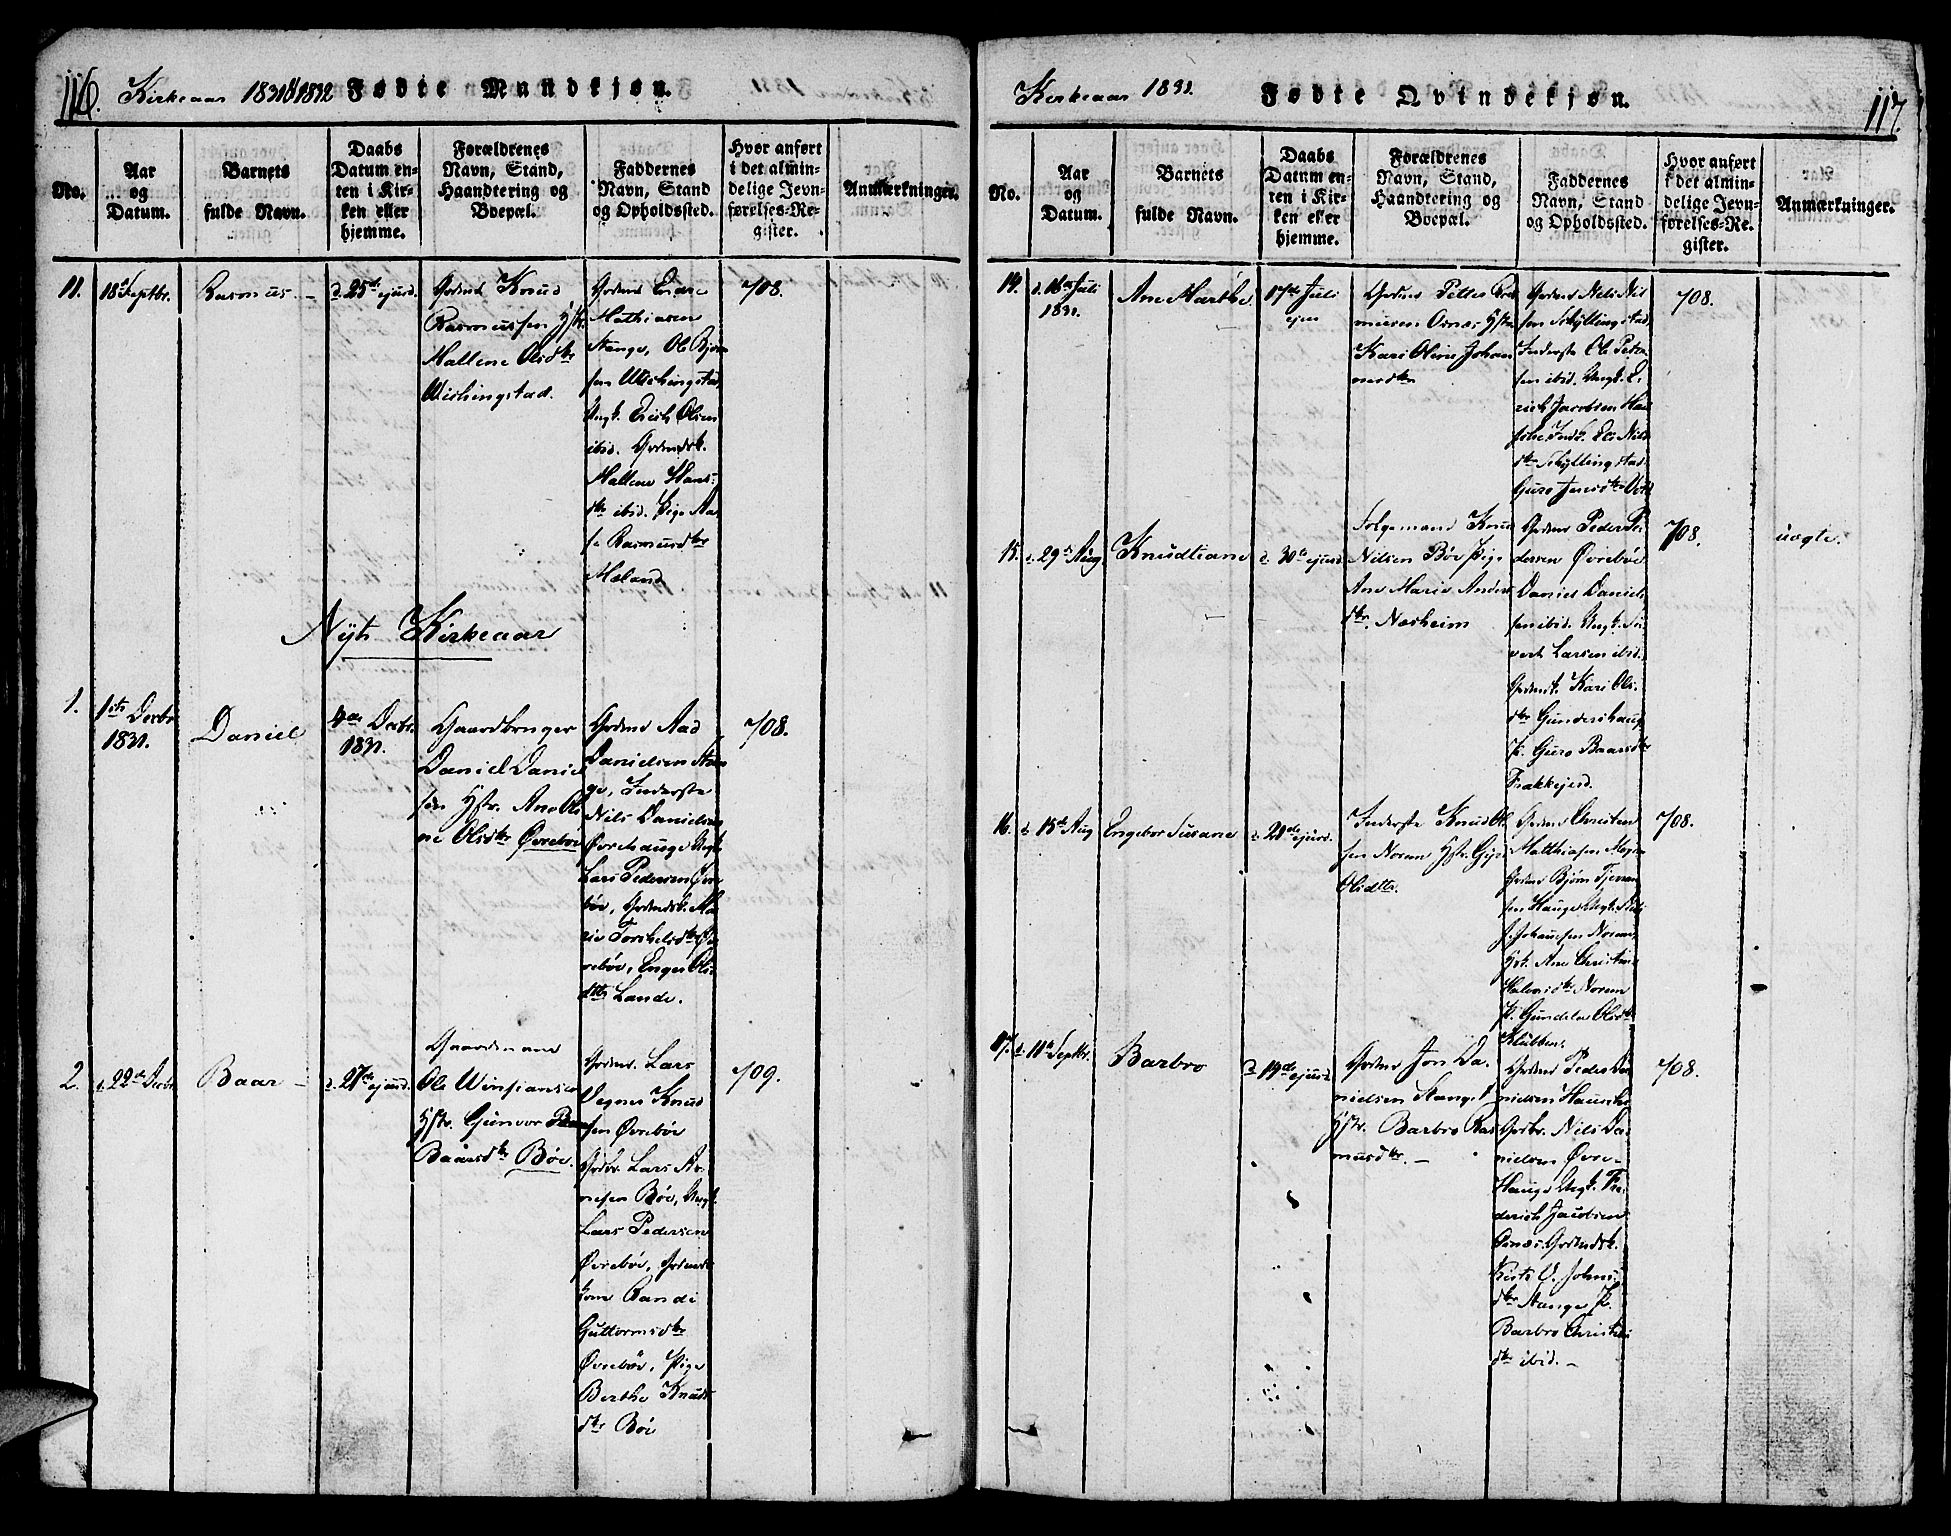 116.
Kirkeaar 1831 & 1832
Fødte Mandkjøn.
No.
Aar
og
Datum.
Barnets
fulde Navn.
Daabs
Datum en-
ten i Kir-
ken eller
hjemme.
Forældrenes
Navn, Stand,
Haandtering og
Boepæl.
Faddernes
Navn, Stand
og Opholdssted.
Hvor anført
i det almin-
delige Jevn-
førelses-Re-
gister.
Anmærkninger.
11.
18de Septbr.
Rasmus. -
d. 25de ejusd.
Grdmd Knud
Rasmussen Hstr.
Mallene Olsdtr
Wishingstad.
Gordmd Enar
Mathiasen
Stange, Ole Bjørn
sen Wishingstad,
Ungk. Erich Olsen
ibid. Grdmdsk.
Mallene Hans-
dtr ibid. Pige Aa-
sa Rasmusdtr
Mæland
708.
Nyt Kirkeaar
1.
1ste Decbr
1831.
Daniel
Decbr.
1831.
Gaardbruger
Daniel Daniel
sen Hstr. Ane Ol
ne Olsdtr Øvrebøe
Grdmd Aad
Danielsen Stan
ge, Inderste
Nils Danielsen
Øvrehauge Ungk.
Lars Pedersen Øvre
bøe, Grdmdsk. Ma
rie Torkelsdtr Øv
rebøe, Enger Ols
dttr Lande.
708.
2.
d. 22de Decbr
Baar -
d. 27de ejusd.
Gaardmand
Ole Winsjansen
Hstr. Gunvor
Baarsdtr Bøe.
Grdmd. Lars
Vegner Knud
sen Øvrebøe
Grdbr. Lars Ar
nesen Bøe, Ungk.
Lars Pedersen
Øvrebøe, Grdmds
kone Randi
Guttormsdtr
Øvrebøe, Pige
Berthe Knuds
dtr Bøe
709.
117.
Kirkeaar 1831.
Fødte Qvindekjøn.
No.
Aar
og
Datum.
Barnets
fulde Navn.
Daabs
Datum en-
ten i Kir-
ken eller
hjemme.
Forældrenes
Navn, Stand,
Haandtering og
Boepæl.
Faddernes
Navn, Stand
og Opholdssted.
Hvor anført
i det almin-
delige Jevn-
førelses-Re-
gister.
Anmærkninger.
14.
d. 16de Juli
1831.
Ane Marthe.
17de Juli
Grdmd Petter Ras
musen Osnæs Hstr
Kari Oline Johan
nesdtr
Grdmd Nils Nil
sen Schyllingstad,
Inderste Ole Peter
sen ibid. Ungk. E-
rich Jacobsen Hau
Nils
dtr Schyllingstad
Guro Jensdtr
708.
15.
d. 29de Aug
Knudtiane
d. 30te ejusd.
Solgemand Knud
Nilsen Bøe Pige
Ane Marie Anders
dtr. Næsheim
Grdmd Peder Pe
dersen Øvrebøe
Daniel Daniel
sen ibid. Ungk. Si
vert Larsen ibid.
Grdmdsk. Kari Ols
dtr Gundershaug
P. Guro Baarsdtr
Frækkejerd.
708.
uægte.
16.
d. 15de Aug
Engebor Susane
d. 28de ejusd.
Inderste Knud Ol
sen Norem Hstr. Gyri
Olsdttr.
Grdmd Christen
Matthiasen
Grdmd Bjørn Tjeran
sen Hauge Ungk.
Johansen Norem,
Hsk. Ane Christine
Halvorsdtr Norem
P. Gundela Olsdtr
Klubben.
708.
17.
d. 11te Septbr.
Barbro
d. 19de ejusd.
Grdmd Jon Da-
nielsen Stange
Hstr. Barbro Ras
musdtr. -
Grdmd Peder Da
nielsen Hauske
Grdbr. Nils Da-
nielsen Øvre-
Hauge Ungk. Fre-
derich Jacobsen
Osnæs. Grdmdsk.
Kirsti O. Johns-
dtr Stange P.
Barbro Christens
dtr ibid. -
708.